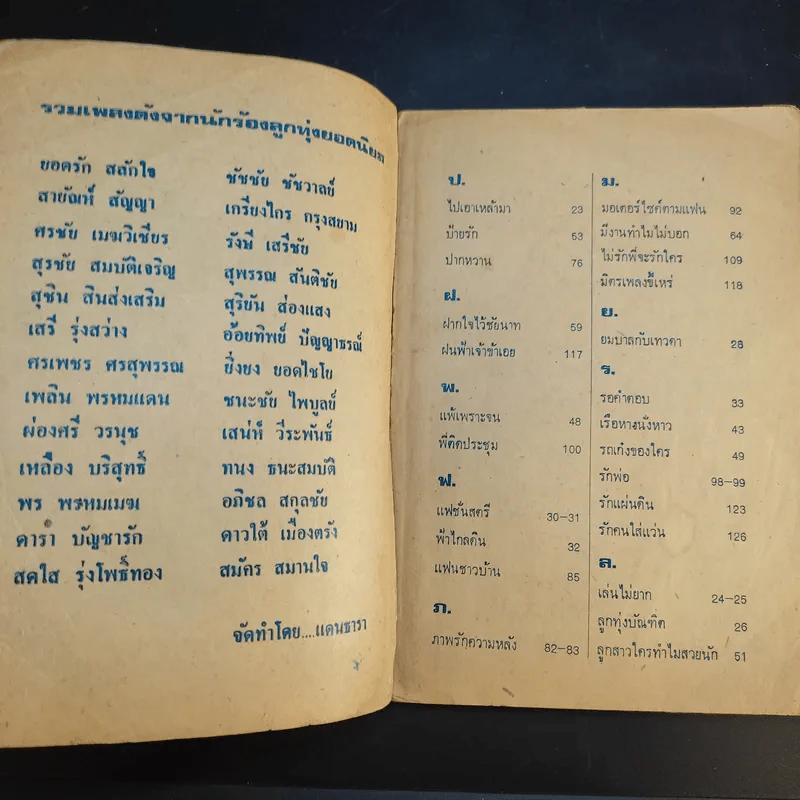 รวมเพลงดังจากนักร้องลูกทุ่งยอดนิยม
ยอดรัก สลักใจ
สายัณห์ สัญญา
ศรชัย เมฆวิเชียร
สุรชัย สมบัติเจริญ
สุชิน สินส่งเสริม
เสรี รุ่งสว่าง
ศรเพชร ศรสุพรรณ
เพลิน พรหมแดน
ผ่องศรี วรนุช
เหลือง บริสุทธิ์
พร พรหมเมฆ
ดารา บัญชารัก
สดใส รุ่งโพธิ์ทอง
ชัชชัย ชัชวาลย์
เกรียงไกร กรุงสยาม
รังษี เสรีชัย
สุพรรณ สันติชัย
สุริยัน ส่องแสง
อ้อยทิพย์ ปัญญาธรณ์
ยิ่งยง ยอดไชโย
ชนะชัย ไพบูลย์
เสน่ห์ วีระพันธ์
ทนง ธนะสมบัติ
อภิชล สกุลชัย
ดาวใต้ เมืองตรัง
สมัคร สมานใจ
จัดทำโดย....แดนธารา
ป.
ไปเอาเหล้ามา 23
ป้ายรัก 53
ปากหวาน 76
ฝ.
ฝากใจไว้ชัยนาท 59
ฝนฟ้าเจ้าข้าเอย 117
พ.
แพ้เพราะจน 48
พี่ติดประชุม 100
ฟ.
แฟชั่นสตรี 30-31
ฟ้าไกลดิน 32
แฟนชาวบ้าน 85
ภ.
ภาพรักความหลัง 82-83
ม.
มอเตอร์ไซค์ตามแฟน 92
มีงานทำไมไม่บอก 64
ไม่รักพี่จะรักใคร 109
มิตรเพลงขี้เหร่ 118
ย.
ยมบาลกับเทวดา 28
ร.
รอคำตอบ 33
เรือหางนั่งหาว 43
รถเก๋งของใคร 49
รักพ่อ 98-99
รักแผ่นดิน 123
รักคนใส่แว่น 126
ล.
เล่นไม่ยาก 24-25
ลูกทุ่งบัณฑิต 26
ลูกสาวใครทำไมสวยนัก 51